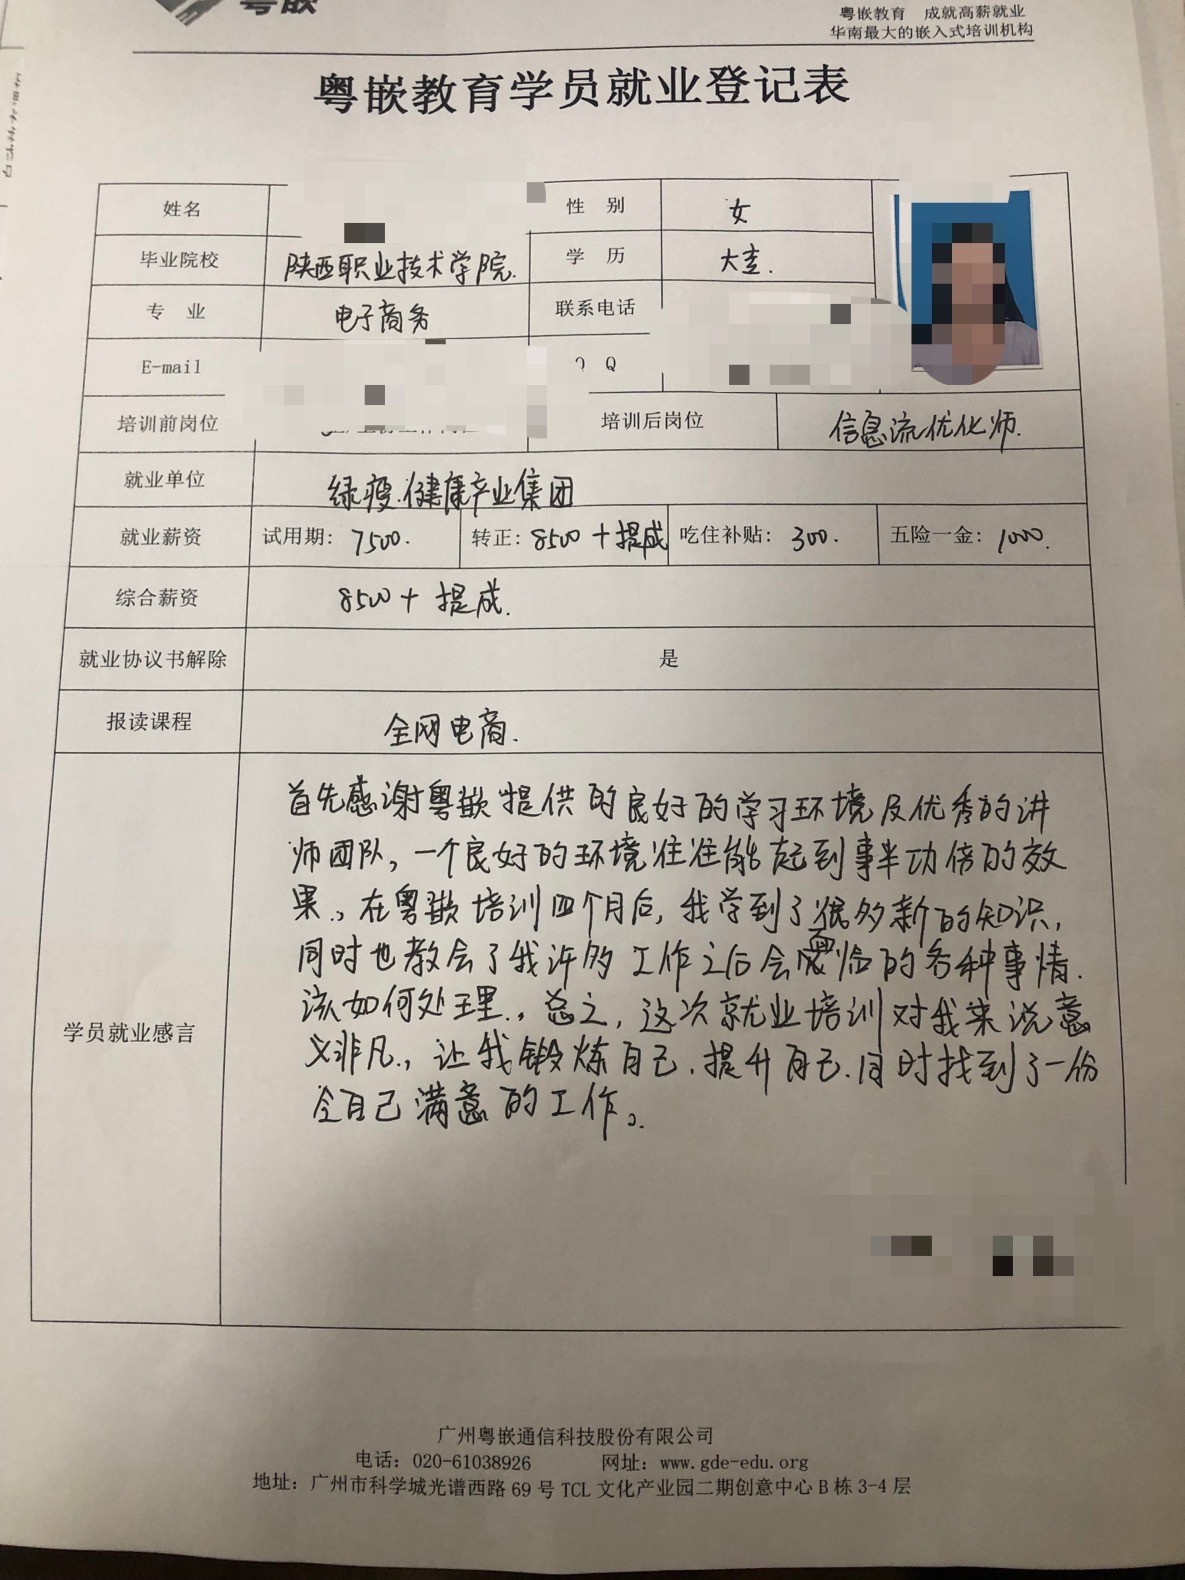 粤嵌
粤嵌教育 成就高薪就业
华南最大的嵌入式培训机构
粤嵌教育学员就业登记表
姓名 性 别 女
毕业院校 陕西职业技术学院. 学 历 大专.
专 业 电子商务 联系电话
E-mail Q
培训前岗位 培训后岗位 信息流优化师.
就业单位 绿瘦.健康产业集团
就业薪资 试用期: 7500. 转正: 8500+提成 吃住补贴: 300. 五险一金: 1000.
综合薪资 8500+提成.
就业协议书解除 是
报读课程 全网电商.
首先感谢粤嵌提供的良好的学习环境及优秀的讲
师团队，一个良好的环境往往能起到事半功倍的效
果.，在粤嵌培训四个月后，我学到了很多新的知识，
同时也教会了我许多工作之后会面临的各种事情.
该如何处理.，总之，这次就业培训对我来说意
学员就业感言
义非凡.，让我锻炼自己.提升自己.同时找到了一份
令自己满意的工作。.
广州粤嵌通信科技股份有限公司
电话: 020-61038926 网址: www.gde-edu.org
地址: 广州市科学城光谱西路 69 号 TCL 文化产业园二期创意中心 B 栋 3-4 层